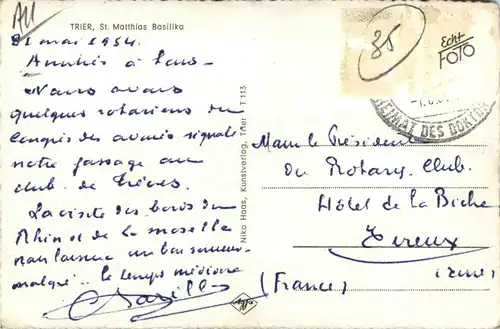 All
TRIER, St. Matthias Basilika
85
Echt
FOTO
31 mai 1954.
Amitiés à tous
Nous avons
quelques rotariens du
Congrès des avoués signalé
notre passage au
club de Trèves.
La visite des bords du
Rhin et de la moselle
nous laisse un bon souvenir
malgré .. le temps médiocre
Niko Haas, Kunstverlag, Trier T 113
HEIMAT DES DOKTOR
le Président
du Rotary-Club.
Hôtel de la Biche
Evreux
(France) (Eure)
Agfa